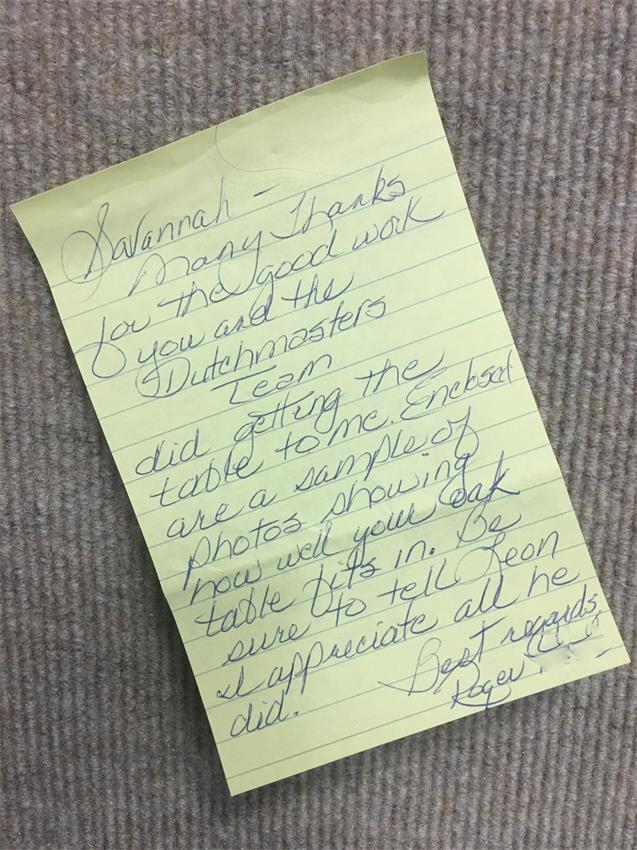 Savannah -
Many Thanks
for the good work
you and the
Dutchmasters
Team
did getting the
table to me. Enclosed
are a sample of
photos showing
how well your oak
table fits in. Be
sure to tell Leon
I appreciate all he
did.
Best regards,
Roger